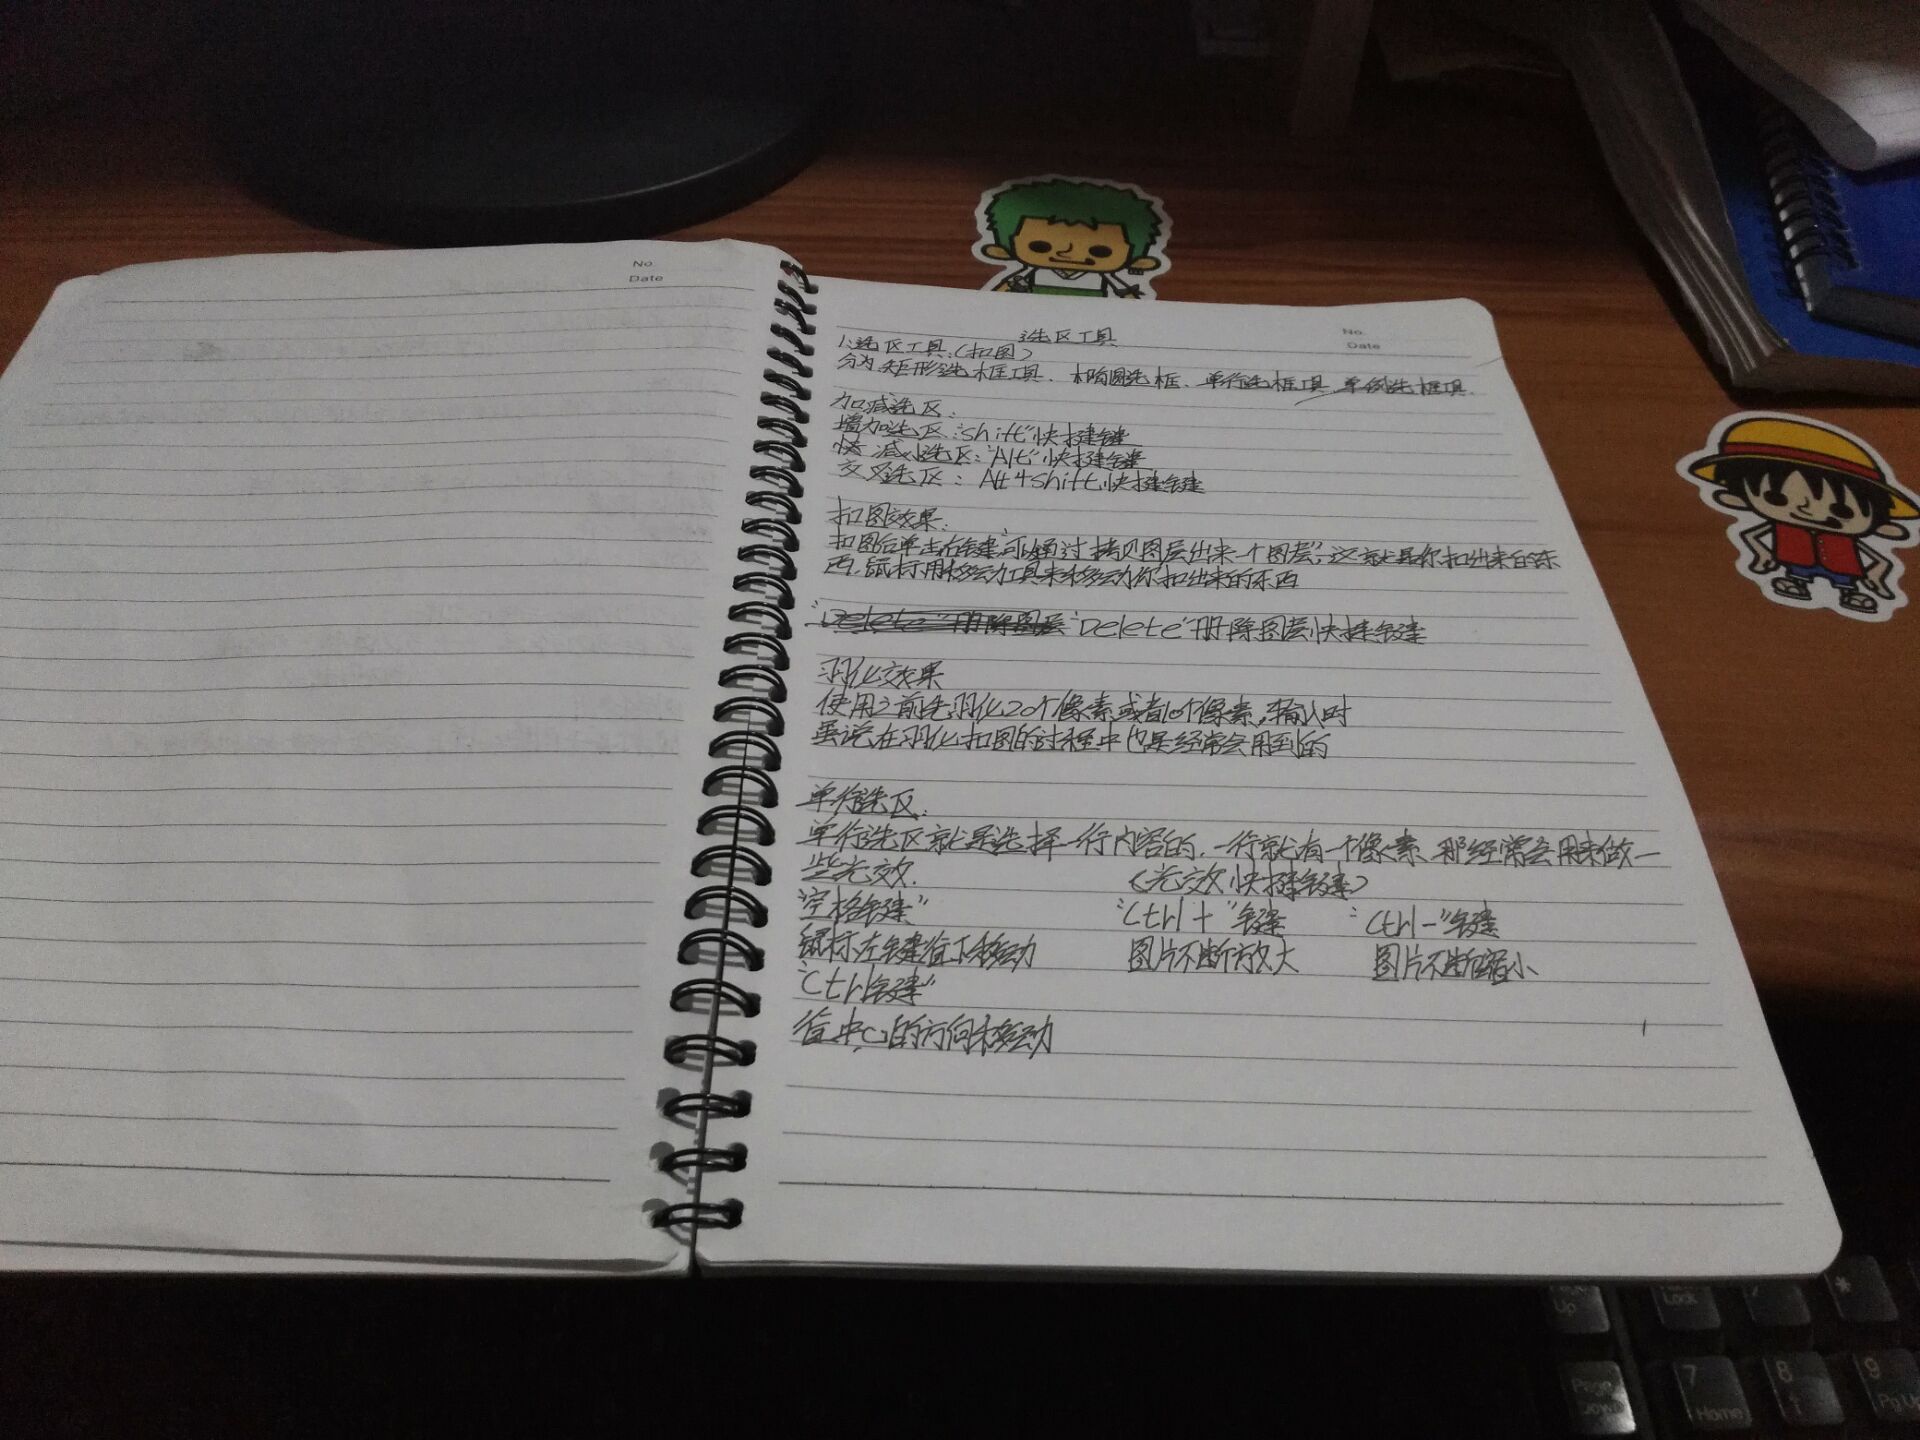 No.
Date
No.
Date
选区工具
1.选区工具:(扣图)
分为矩形选框工具、椭圆选框、单行选框工具、单列选框工具.
加减选区:
增加选区:"shift"快捷键
减小选区:"Alt"快捷键
交叉选区: Alt+shift快捷键
扣图效果:
扣图后单击右键,可以通过"拷贝图层出来一个图层",这就是你扣出来的东
西,鼠标用移动工具来移动你扣出来的东西
"Delete"删除图层 "Delete"删除图层快捷键
羽化效果
使用之前先羽化20个像素或者10个像素,输入时
虽说在羽化扣图的过程中也是经常会用到的
单行选区:
单行选区就是选择一行内容的,一行就有一个像素,那经常会用来做一
些光效. (光效快捷键)
"空格键" "Ctrl+"键 "Ctrl-"键
鼠标左键往下移动 图片不断放大 图片不断缩小
"Ctrl键"
往中心的方向移动
Up
Lock
/
*
Page
Down
7
Home
8
↑
9
PgUp